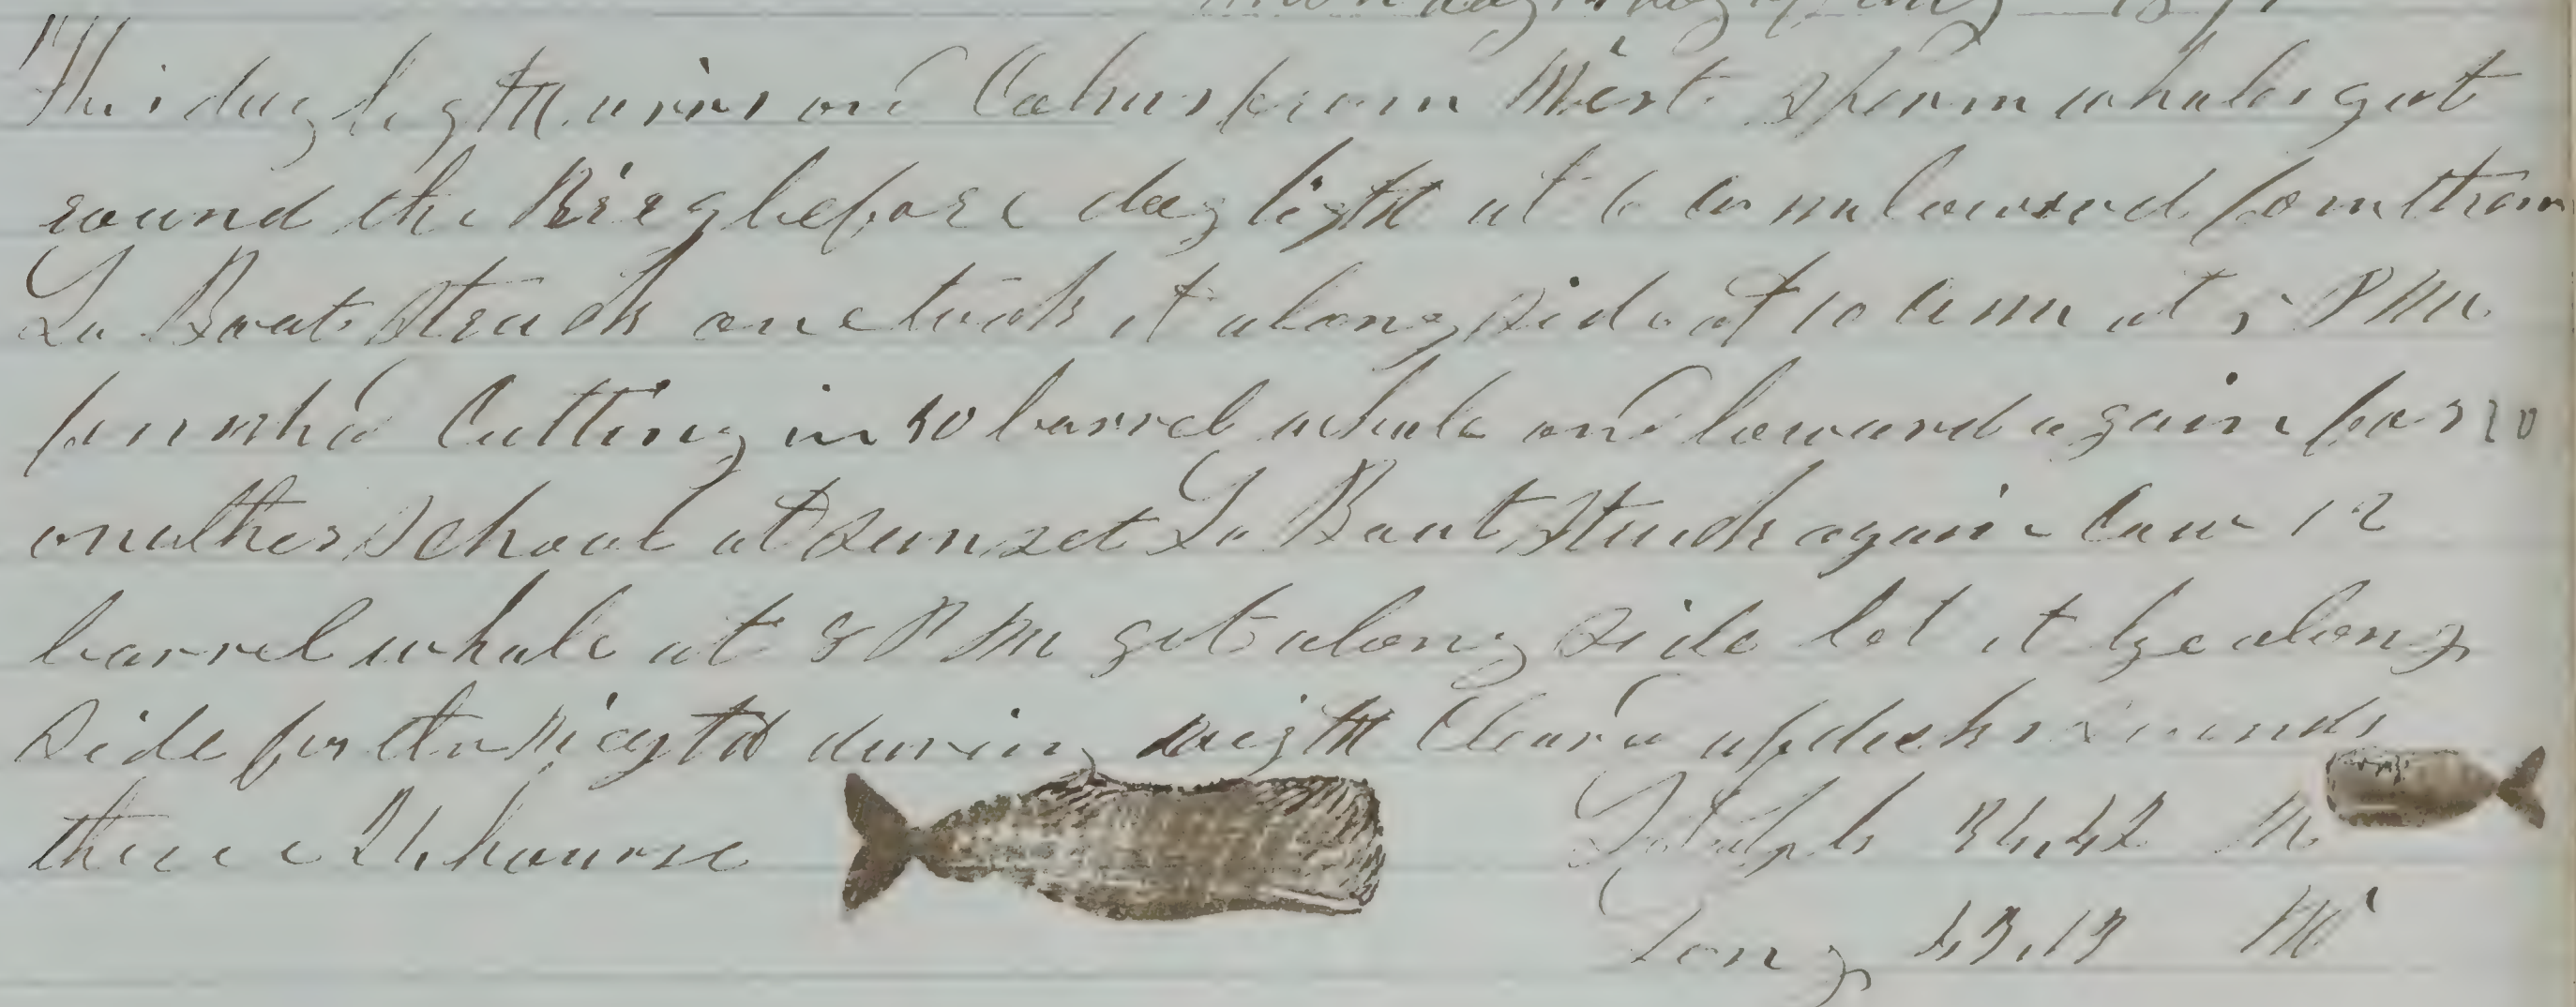 This day light airs and Calms from West Sperm whales got
round the Brig before day light at 6 a m lowered for them
La Boat Struck one took it along side at 10 a m at 5 P M
finnshd Cutting in 30 barrel whale and lowered again for
another School at Sunset La Boat Struck again Cow 12
barrel whale at 8 P M got along side let it lye along
side for the nigth during nigth up decks
these 24 hourse
Latd by 36,42 N
Long 43,13 W